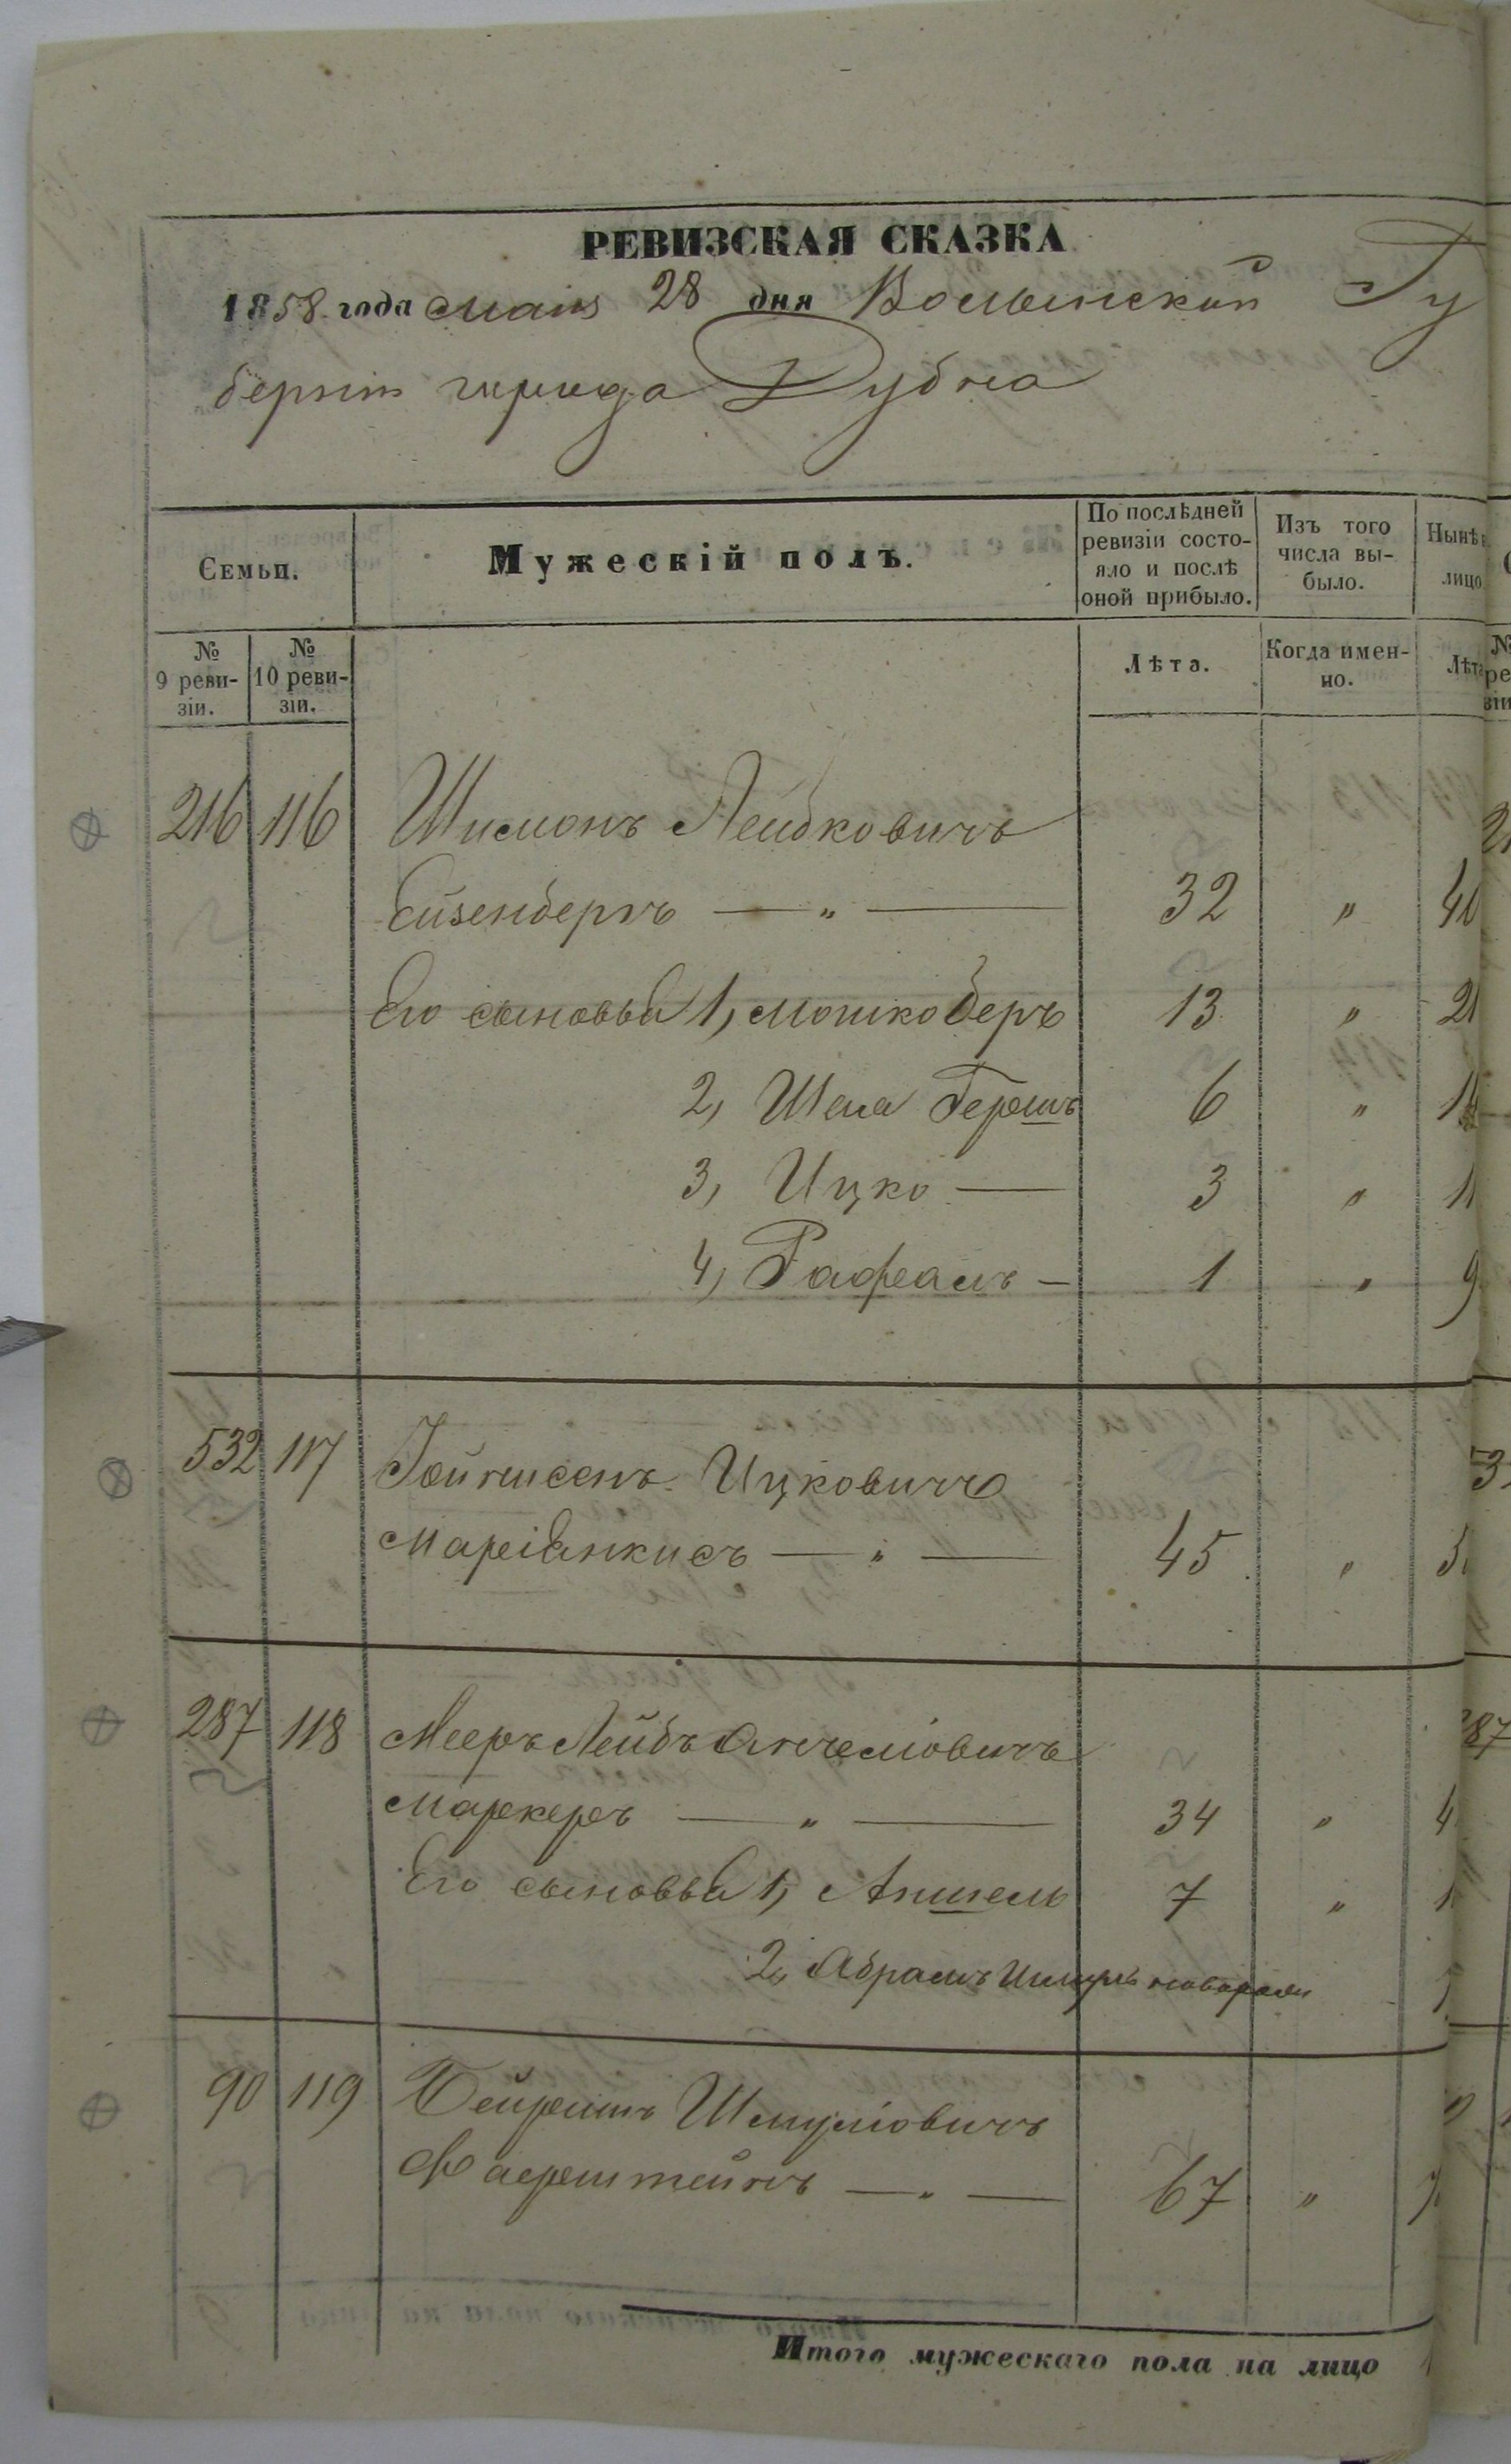 РЕВИЗСКАЯ СКАЗКА
1858 года Маія 28 дня Волынской Гу
берніи города Дубна
Семьи.
Мужескій полъ.
По послѣдней ревизіи состо-
яло и послѣ
оной прибыло.
Изъ того
числа вы-
было.
Нынѣ
лицо
№
9 реви-
зіи.
№
10 реви-
зіи.
Лѣта.
Когда имен-
но.
Лѣта
216 116 Шимонъ Лейбковичъ
Ейзенбергъ — „ — 32 „ 40
Его сыновья 1, Мошко Беръ 13 „ 21
2, Шела Гершъ 6 „ 14
3, Ицко — 3 „ 11
4, Рафеалъ — 1 „ 9
532 117 Ицковичъ
— „ — 45 „
287 118 Мееръ Лейбъ Анчеліовичъ
Маркеръ — „ — 34 „ 4
Его сыновья 1, Аншель 7 „ 1
2, Абрамъ Шмуль
90 119 Бейришъ Шмуліовичъ
Фаерштейнъ — „ — 67 „
Итого мужескаго пола на лицо